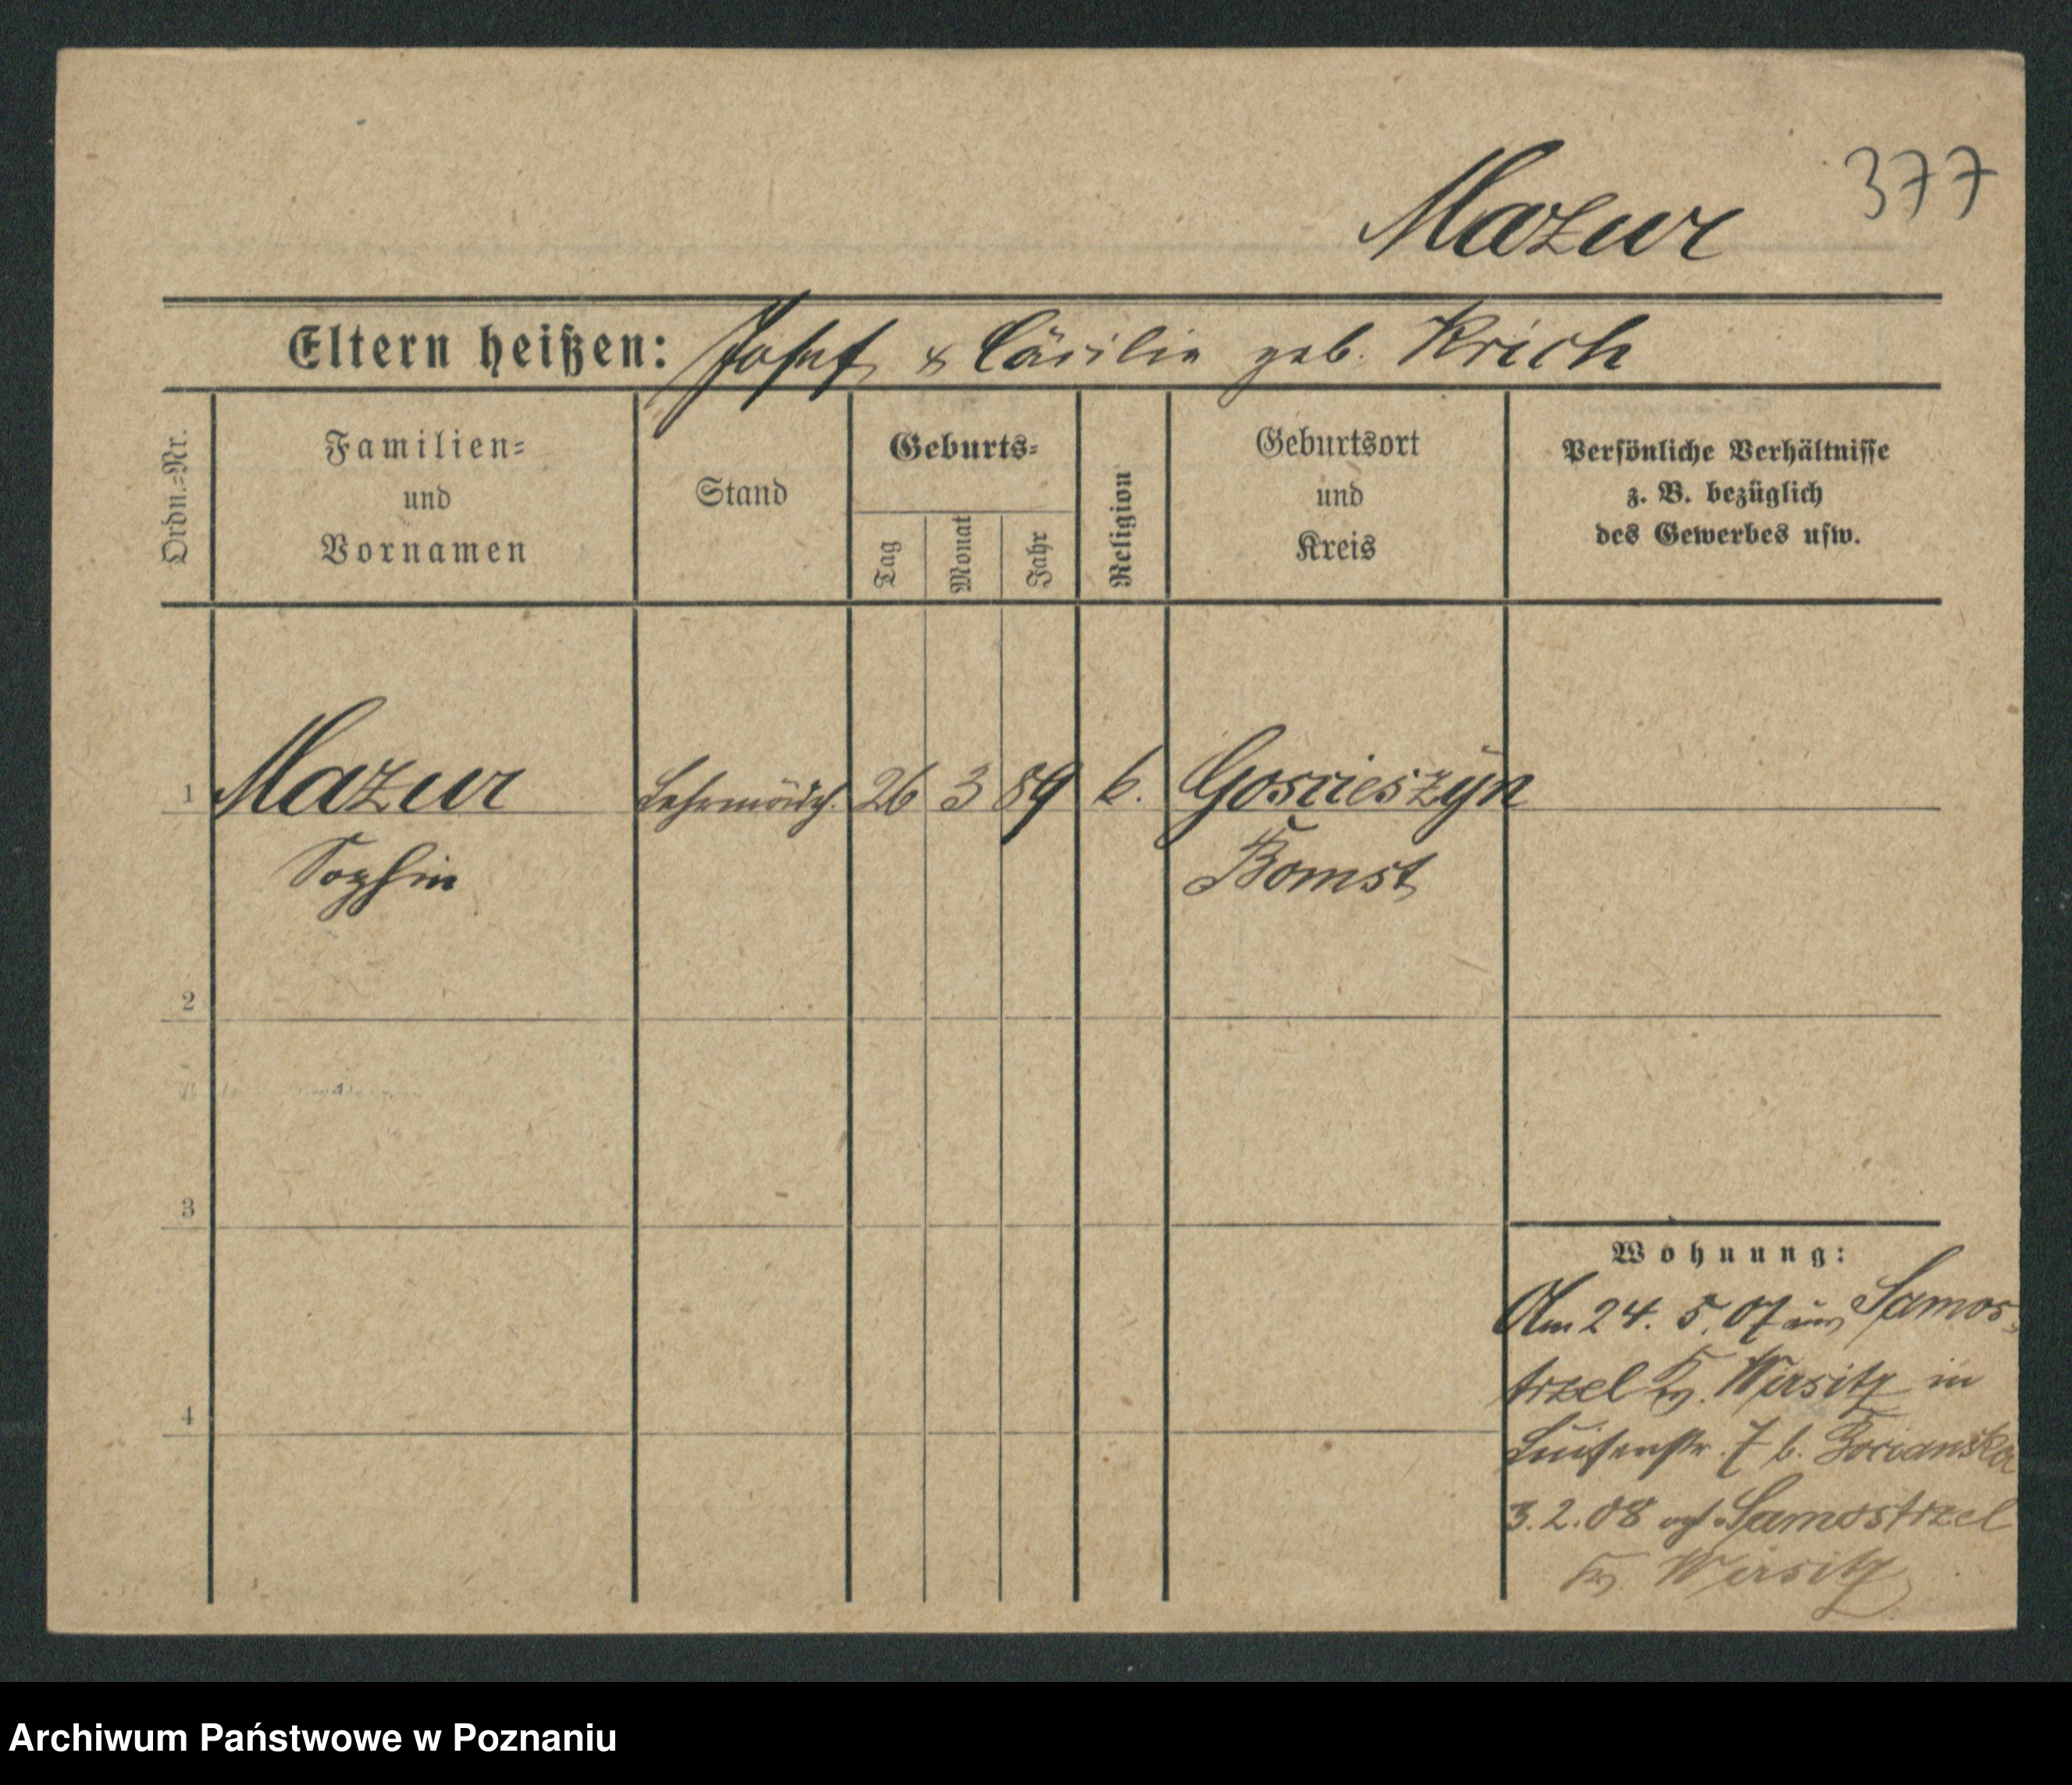 377
Mazur
Eltern heißen: Josef & Cäcilie geb. Krich
Ordn.-Nr.
Familien-
und
Vornamen
Stand
Geburts-
Tag
Monat
Jahr
Religion
Geburtsort
und
Kreis
Persönliche Verhältnisse
z. B. bezüglich
des Gewerbes usw.
1 Mazur Lehrmädch. 26 3 89 k. Goscieszyn
Sophie Bomst
2
3
4
Wohnung:
Am 24. 5. 07 aus Samos-
trzel Kr. Wirsitz in
Luisenstr. 7 b.
3.2.08 Samostrzel
Kr. Wirsitz
Archiwum Państwowe w Poznaniu